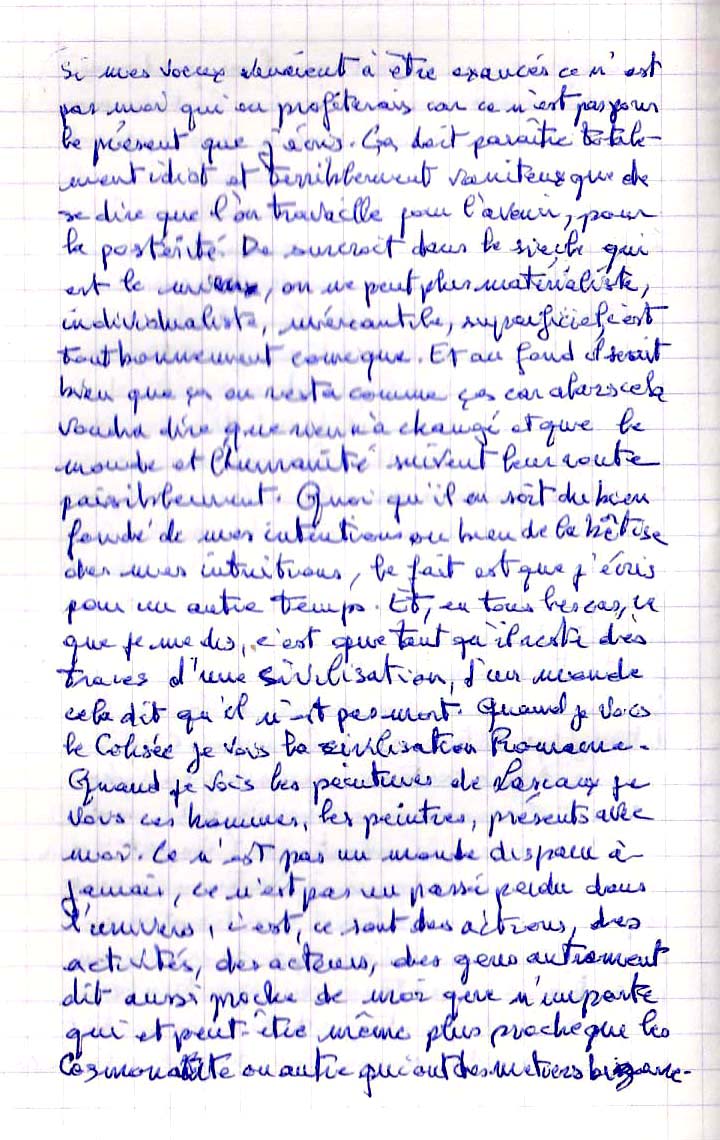 Si mes voeux venaient à être exaucés ce n'est
pas moi qui en profiterais car ce n'est pas pour
le présent que j'écris. Ça doit paraître totale-
ment idiot et terriblement vaniteux que de
se dire que l'on travaille pour l'avenir, pour
la postérité. De surcroit dans le siècle qui
est le mien, on ne peut plus matérialiste,
individualiste, mércantile, superficiel, c'est
tout bonnement comique. Et au fond il serait
bien que ça en resta comme ça car alors cela
voudra dire que rien n'a changé et que le
monde et l'humanité suivent leur route
paisiblement. Quoi qu'il en soit du bien
fondé de mes intentions ou bien de la bêtise
des mes intuitions, le fait est que j'écris
pour un autre temps. Et, en tous les cas, ce
que je me dis, c'est que tant qu'il reste des
traces d'une sivilisation, d'un monde
cela dit qu'il n'est pas mort. Quand je vois
le Colisée je vois la civilisation Romaine.
Quand je vois les peintures de Lascaux je
vois ces hommes, les peintres, présents avec
moi. Ce n'est pas un monde disparu à
jamais, ce n'est pas un passé perdu dans
l'univers, c'est, ce sont des actions, des
activités, des acteurs, des gens autrement
dit aussi proche de moi que n'importe
qui et peut-être même plus proche que les
Cosmonaute ou autre qui ont des metiers bizarre-